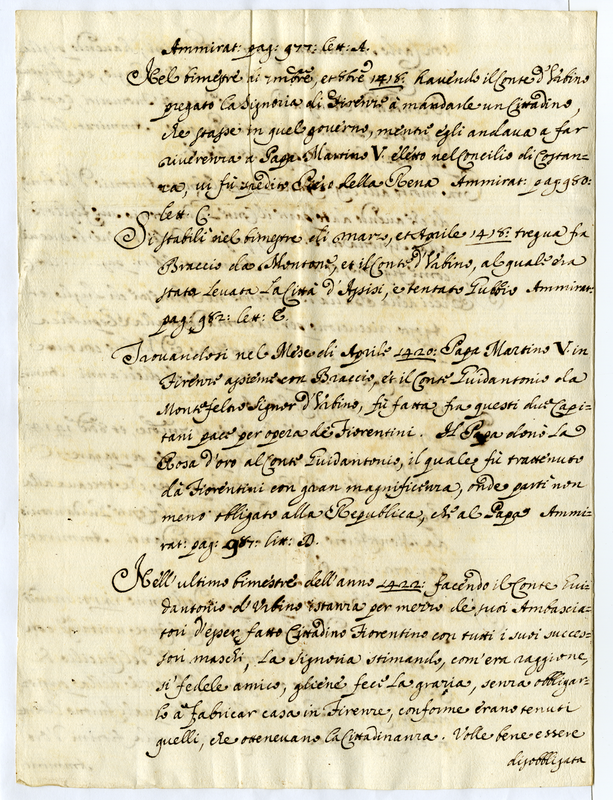 Ammirat: pag: 977: lett: A.
Nel bimestre di 7mbre, et 8bre 1418: havendo il Conte d'Vrbino
pregato la Signoria di Firenze à mandarle un Cittadino,
che stasse in quel governo, mentre egli andava a far
riverenza a Papa Martino V. eletto nel Concilio di Costan-
za, vi fù spedito della Rena Ammirat: pag: 980:
lett: C.
Si stabilì nel bimestre di marz, et Aprile 1418: tregua fra
Braccio da Montone, et il Conte d'Vrbino, al quale era
stata levata La Città d'Assisi, e tentato Gubbio Ammirat:
pag: 982: lett: E.
Trovandosi nel Mese di Aprile 1420: Papa Martino V. in
Firenze assieme con Braccio, et il Conte Guidantonio da
Montefeltro Signor d'Vrbino, fù fatta fra questi due Capi-
tani pace per opera de Fiorentini. Il Papa donò La
Rosa d'oro al Conte Guidantonio, il quale fù trattenuto
dà Fiorentini con gran magnificenza, onde partì non
meno obbligato alla Republica, che al Papa Ammi-
rat: pag: 987: lett: D.
Nell'ultimo bimestre dell'anno 1422: facendo il Conte Gui-
dantonio d'Vrbino istanza per mezzo de suoi Ambascia-
tori d'esser fatto Cittadino Fiorentino con tutti i suoi succes-
sori maschi, La Signoria stimando, com'era raggione,
sì fedele amico, gliene fece La grazia, senza obbligar-
lo à fabricar casa in Firenze, conforme erano tenuti
quelli, che ottenevano la Cittadinanza. Volle bene essere
disobbligata